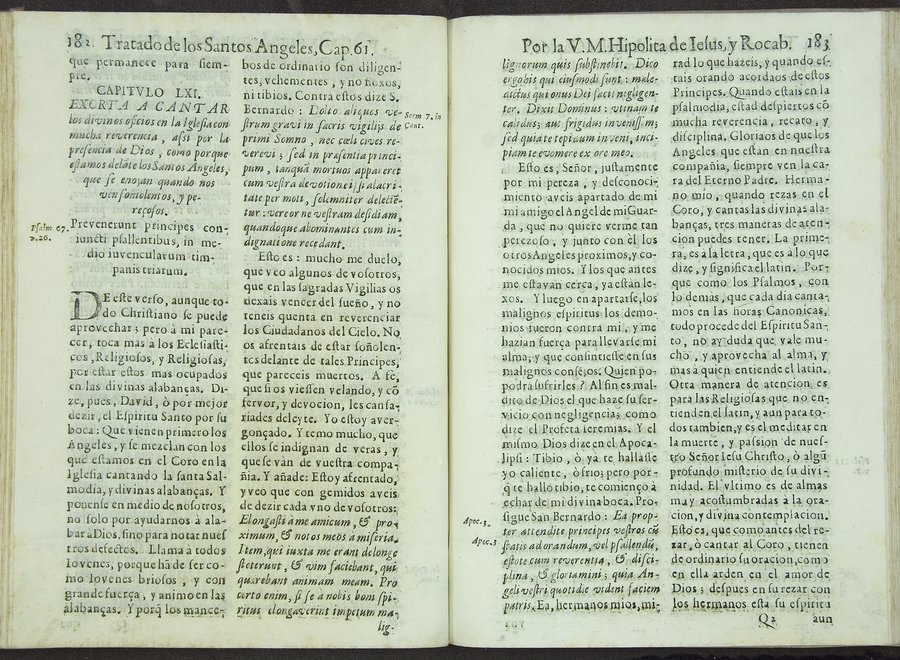 182 Tratado de los Santos Angeles, Cap. 61.
que permanece para siem-
pre.
CAPITVLO LXI.
EXORTA A CANTAR
los divinos oficios en la Iglesia con
mucha reverencia, assi por la
presencia de Dios, como porque
estamos delãte los Santos Angeles,
que se enojan quando nos
ven soñolentos, y pe-
reçosos.
Psalm. 67.
v. 26.
Prevenerunt principes con-
iuncti psallentibus, in me-
dio iuvencularum tim-
panistriarum.
DE este verso, aunque to-
do Christiano se puede
aprovechar; pero à mi pare-
cer, toca mas à los Eclesiasti-
cos, Religiosos, y Religiosas,
por estar estos mas ocupados
en las divinas alabanças. Di-
ze, pues, David, ò por mejor
dezir, el Espiritu Santo por su
boca: Que vienen primero los
Angeles, y se mezclan con los
que estamos en el Coro en la
Iglesia cantando la santa Sal-
modia, y divinas alabanças. Y
ponense en medio de nosotros,
no solo por ayudarnos à ala-
bar à Dios, sino para notar nues-
tros defectos. Llama à todos
Iovenes, porque hà de ser co-
mo Iovenes briosos, y con
grande fuerça, y animo en las
alabanças. Y porq̃ los mance-
bos de ordinario son diligen-
tes, vehementes, y no floxos,
ni tibios. Contra estos dize S.
Bernardo: Doleo aliquos ve-
Serm 7. in
Cant.
strum gravi in sacris vigilijs de
primi Somno, nec cœli cives re-
vereri; sed in præsentia princi-
pum, tanquã mortuos apparere
cum vestra devotione, & alacri-
tate per moti, solemniter delectẽ-
tur: vereor ne vestram desidiam,
quandoque abominantes cum in-
dignatione recedant.
Esto es: mucho me duelo,
que veo algunos de vosotros,
que en las sagradas Vigilias os
dexais vencer del sueño, y no
teneis quenta en reverenciar
los Ciudadanos del Cielo. No
os afrentais de estar soñolen-
tes delante de tales Principes,
que pareceis muertos. A fè,
que si os viessen velando, y cõ
fervor, y devocion, les cansa-
riades deleyte. Yo estoy aver-
gonçado. Y temo mucho, que
ellos se indignan de veras, y
que se vàn de vuestra compa-
ñia. Y añade: Estoy afrentado,
y veo que con gemidos aveis
de dezir cada vno de vosotros:
Elongasti à me amicum, & pro-
ximum, & notos meos à miseria.
Item, qui iuxta me erant de longe
steterunt, & vim faciebant, qui
quærebant animam meam. Pro
certo enim, si se à nobis boni spi-
ritus elongaverint impetum ma-
lig-
Por la V. M. Hipolita de Iesus, y Rocab. 183
lignorum quis sustinebit. Dico
ergo bis qui eiusmodi sunt: male-
dictus qui onus Dei facit negligen-
ter. Dixit Dominus: vtinam te
calidus; aut frigidus invenissm;
sed quia te tepidum inveni, inci-
piam te evomere ex ore meo.
Esto es, Señor, justamente
por mi pereza, y desconoci-
miento aveis apartado de mi
mi amigo el Angel de mi Guar-
da, que no quiere verme tan
perezoso, y junto con èl los
otros Angeles proximos, y co-
nocidos mios. Y los que antes
me estavan cerca, ya estàn le-
xos. Y luego en apartarse, los
malignos espiritus los demo-
nios fueron contra mi, y me
hazian fuerça para llevarse mi
alma; y que consintiesse en sus
malignos consejos. Quien po-
podra sufrirles? Al fin es mal-
dito de Dios el que haze su ser-
vicio con negligencia; como
dize el Profeta Ieremias. Y el
mismo Dios dize en el Apoca-
lipsi: Tibio, ò yà te hallasse
yo caliente, ò frio; pero por-
q̃ te hallo tibio, te començo à
echar de mi divina boca. Pro-
Apoc. 3.
sigue San Bernardo: Ea prop-
ter attendite principes vestros cũ
Apoc. 3
statis ad orandum, vel psallendũ,
estote cum reverentia, & disci-
plina, & gloriamini; quia An-
geli vestri quotidie vident faciem
patris. Ea, hermanos mios, mi-
rad lo que hazeis, y quando es-
tais orando acordaos de estos
Principes. Quando estais en la
psalmodia, estad despiertos cõ
mucha reverencia, recato, y
disciplina. Gloriaos de que los
Angeles que estan en nuestra
compañia, siempre ven la ca-
ra del Eterno Padre. Herma-
no mio, quando rezas en el
Coro, y cantas las divinas ala-
banças, tres maneras de aten-
cion puedes tener. La prime-
ra, es à la letra, que es à lo que
dize, y significa el latin. Por-
que como los Psalmos, con
lo demàs, que cada dia canta-
mos en las horas Canonicas,
todo procede del Espiritu San-
to, no ay duda que vale mu-
cho, y aprovecha al alma, y
mas à quien entiende el latin.
Otra manera de atencion es
para las Religiosas que no en-
tienden el latin, y aun para to-
dos tambien, y es el meditar en
la muerte, y passion de nues-
tro Señor Iesu Christo, ò algũ
profundo misterio de su divi-
nidad. El vltimo es de almas
muy acostumbradas à la ora-
cion, y divina contemplacion.
Esto es, que como antes del re-
zar, ò cantar al Coro, tienen
de ordinario su oracion, como
en ella arden en el amor de
Dios; despues en su rezar con
los hermanos està su espiritu
Q2 aun